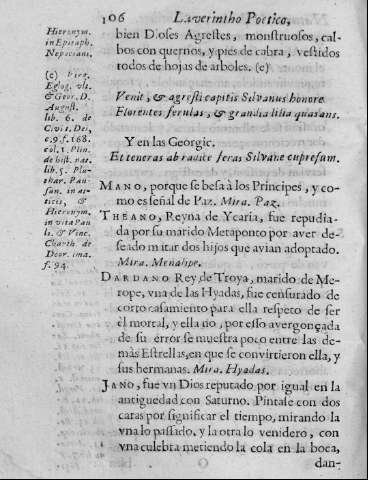 106 Laverintho Poetico,
Hieronym.
in Epitaph.
Nepociani.
(e) Virg.
Eglog. vlt.
& Geor. D.
August.
lib. 6. de
Civit. Dei,
c. 9. f. 168.
col. 1. Plin.
de hist. nat.
lib. 5. Plu-
thar. Pau-
san. in at-
ticis, &
Hieronym.
in vita Pau
li. & Vinc.
Charth. de
Deor. ima.
f. 94.
bien Dioses Agrestes, monstruosos, cal-
bos con quernos, y pies de cabra, vestidos
todos de hojas de arboles. (e)
Venit, & agresti capitis Silvanus honore
Florentes ferulas, & grandia lilia quasans.
Y en las Georgic.
Et teneras ab radice feras Silvane cupresum.
MANO, porque se besa à los Principes, y co-
mo es señal de Paz. Mira. Paz.
THEANO, Reyna de Ycaria, fue repudia-
da por su marido Metaponto por aver de-
seado matar dos hijos que avian adoptado.
Mira. Menalipe.
DARDANO Rey de Troya, marido de Me-
rope, vna de las Hyadas, fue censurado de
corto casamiento para ella respeto de ser
èl mortal, y ella no, por esso avergonçada
de su error se muestra poco entre las de-
màs Estrellas, en que se convirtieron ella, y
sus hermanas. Mira. Hyadas.
JANO, fue vn Dios reputado por igual en la
antiguedad con Saturno. Pintale con dos
caras por significar el tiempo, mirando la
vna lo passado, y la otra lo venidero, con
vna culebra metiendo la cola en la boca,
dan-